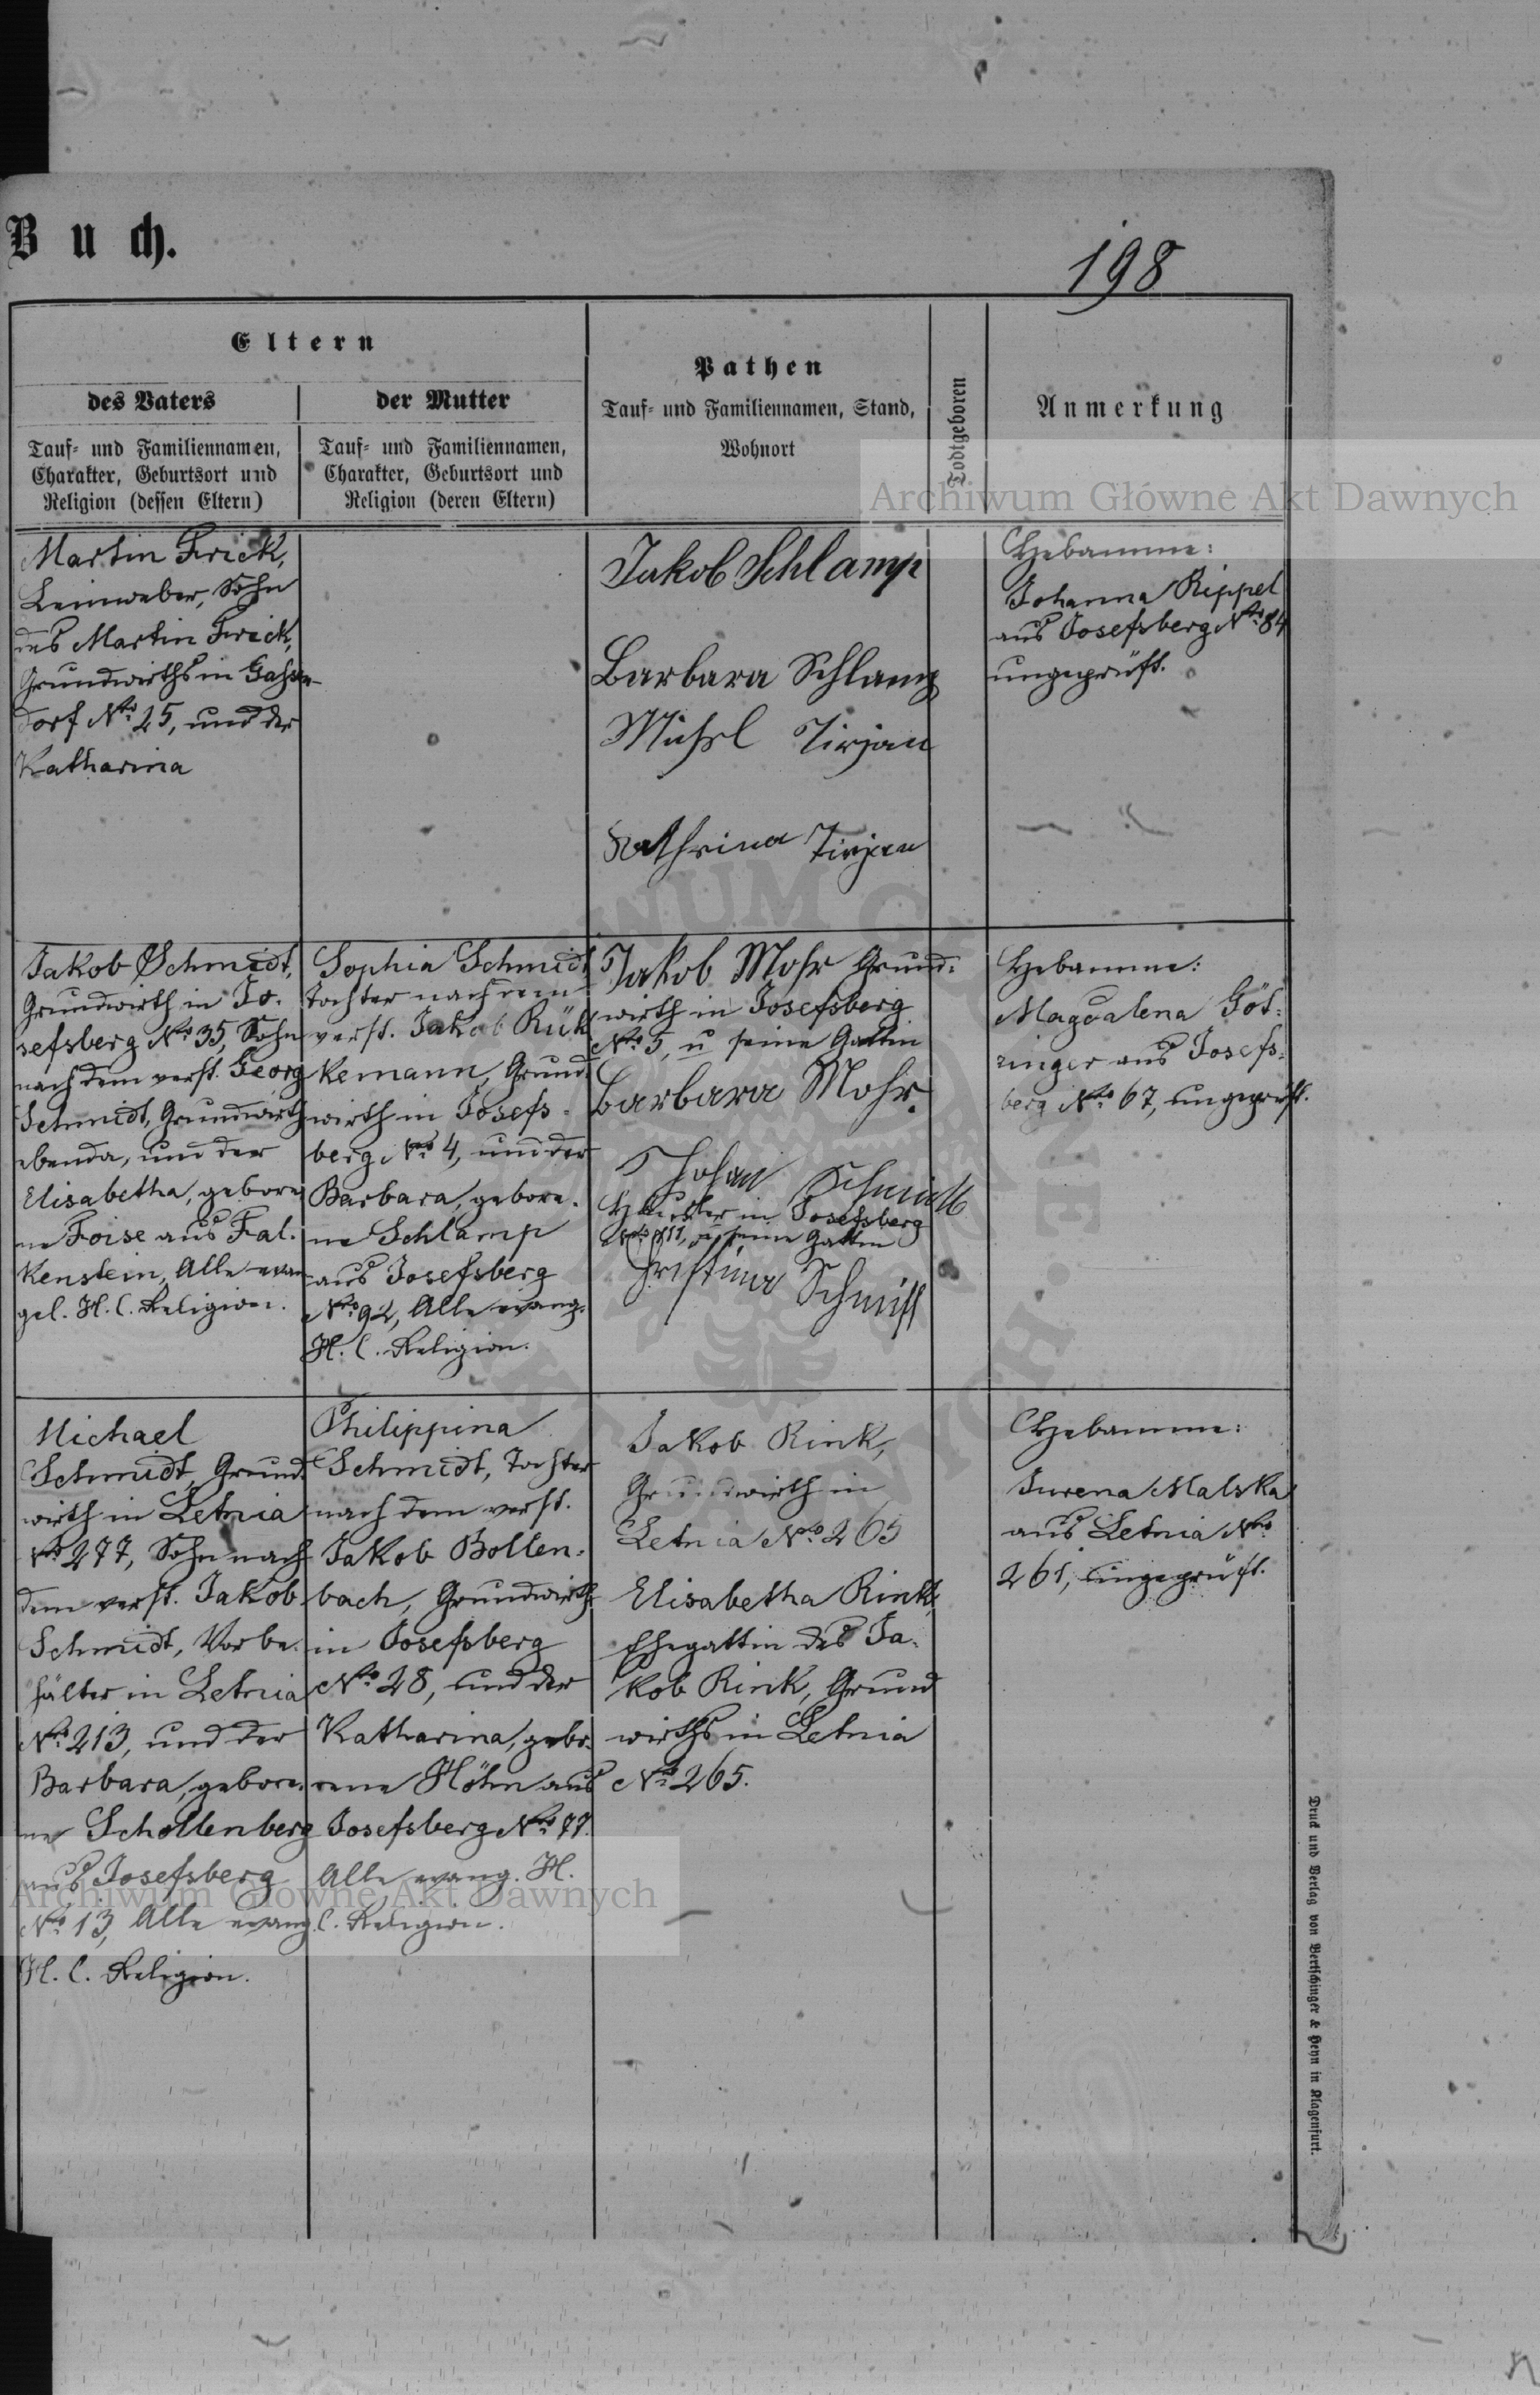 Buch.
198
Eltern
des Vaters
Tauf- und Familiennamen,
Charakter, Geburtsort und
Religion (dessen Eltern)
der Mutter
Tauf- und Familiennamen,
Charakter, Geburtsort und
Religion (deren Eltern)
Pathen
Tauf- und Familiennamen, Stand,
Wohnort
Todtgeboren
Anmerkung
Archiwum Główne Akt Dawnych
Martin Frick,
Leinweber, Sohn
des Martin Frick,
Grundwirths in
dorf No. 25, und der
Katharina
Jakob Schlamp
Barbara Schlamp
Michel Tirjan
Kathrina Tirjan
Hebamme:
Johanna Rippel
aus Josefsberg No. 84
ungeprüft.
Jakob Schmidt,
Grundwirth in Jo-
sefsberg No. 35, Sohn
nach dem verst. Georg
Schmidt, Grundwirth
ebenda, und der
Elisabetha, gebore
ne Foise aus Fal-
kenstein, Alle evan
gel. H. C. Religion.
Sophia Schmidt
Tochter nach dem
verst. Jakob Rük
kemann, Grund
wirth in Josefs-
berg No. 4, und der
Barbara, gebore-
ne Schlamp
aus Josefsberg
No. 92, Alle evang.
H. C. Religion.
Jakob Mohr Grund-
wirth in Josefsberg
No. 5, u seine Gattin
Barbara Mohr.
Johan Schmidt
Häusler in Josefsberg
No. 111, u seine Gattin
Christina Schmitt
Hebamme:
Magdalena Göt-
ringer aus Josefs-
berg No. 67, ungeprüft.
Michael
Schmidt, Grund
wirth in Letnia
No. 277, Sohn nach
dem verst. Jakob
Schmidt, Vorbe-
hälter in Letnia
No. 213, und der
Barbara, gebore-
ne Schollenberg
aus Josefsberg
No. 13, Alle evang.
H. C. Religion.
Philippina
Schmidt, Tochter
nach dem verst.
Jakob Bollen-
bach, Grundwirth
in Josefsberg
No. 28, und der
Katharina, gebo-
rene Höhn aus
Josefsberg No. 77.
Alle evang. H.
C. Religion.
Jakob Rink,
Grundwirth in
Letnia No. 265
Elisabetha Rink,
Ehegattin des Ja-
kob Rink, Grund
wirths in Letnia
No. 265.
Hebamme:
Jurena Malska
aus Letnia No.
261, ungeprüft.
Archiwum Główne Akt Dawnych
Druck und Verlag von Bertschinger & Heyn in Klagenfurt.